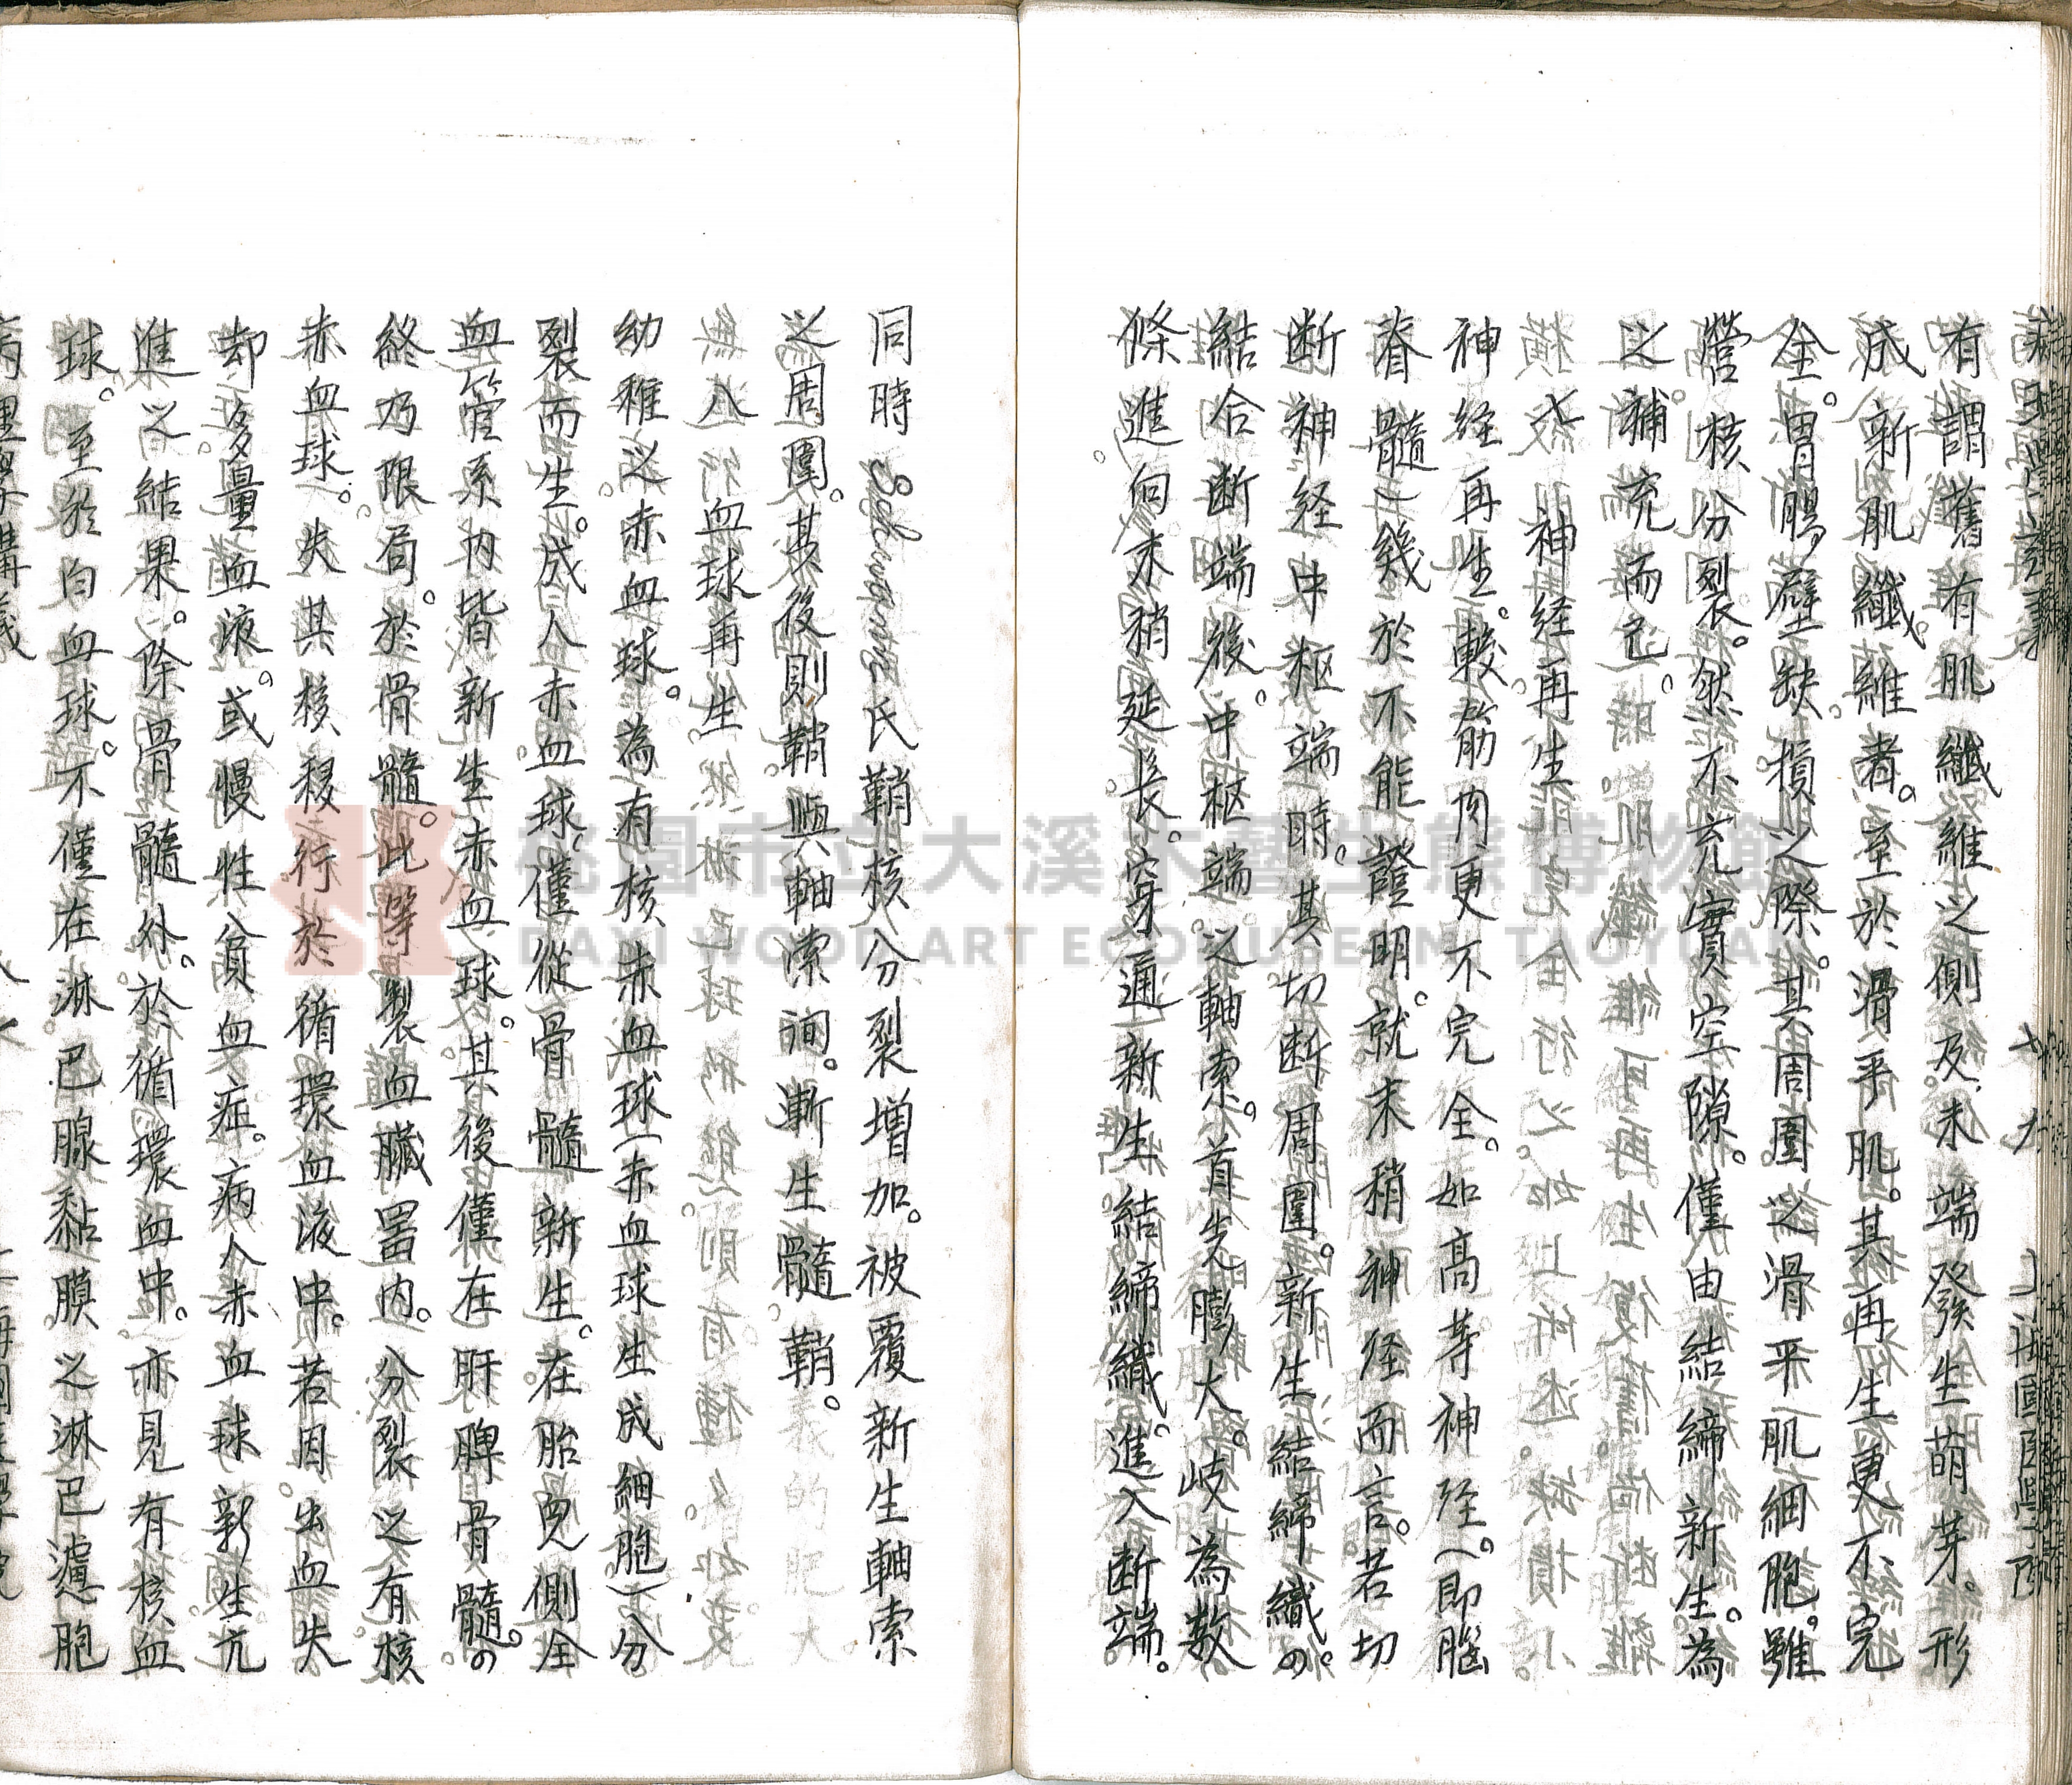 有謂舊有肌纖維之側及末端發生萌芽。形
成新肌纖維者。至於滑平肌。其再生更不完
全。胃腸壁缺損之際。其周圍之滑平肌細胞。雖
營核分裂。然不充實空隙。僅由結締新生。為
之補充而已。
神经再生
神经再生。較筋肉更不完全。如高等神经。(即腦
脊髓)幾於不能證明。就末稍神经而言。若切
断神经中枢端時。其切断周圍。新生結締織の。
結合断端後。中枢端。之軸索。首先膨大。岐為数
條進向末稍延長。穿通新生結締織。進入断端。
同時 Schwann氏鞘核分裂増加。被覆新生軸索
之周圍。其後則鞘與軸索间。漸生髓鞘。
血球再生
幼稚之赤血球。為有核赤血球(赤血球生成細胞)分
裂而生。成人赤血球。僅從骨髓新生。在胎児側全
血管系内皆新生赤血球。其後僅在肝脾骨髓。の
終乃限局。於骨髓。此等製血臟器内。分裂之有核
赤血球。失其核移行於循環血液中。若因。出血失
却多量血液。或慢性貧血症。病人赤血球新生亢
進之結果。除骨髓外。於循環血中。亦見有核血
球。至於白血球。不僅在淋巴腺黏膜之淋巴濾胞
桃園市立大溪木藝生態博物館
DAXI WOOD ART ECOMUSEUM, TAOYUAN